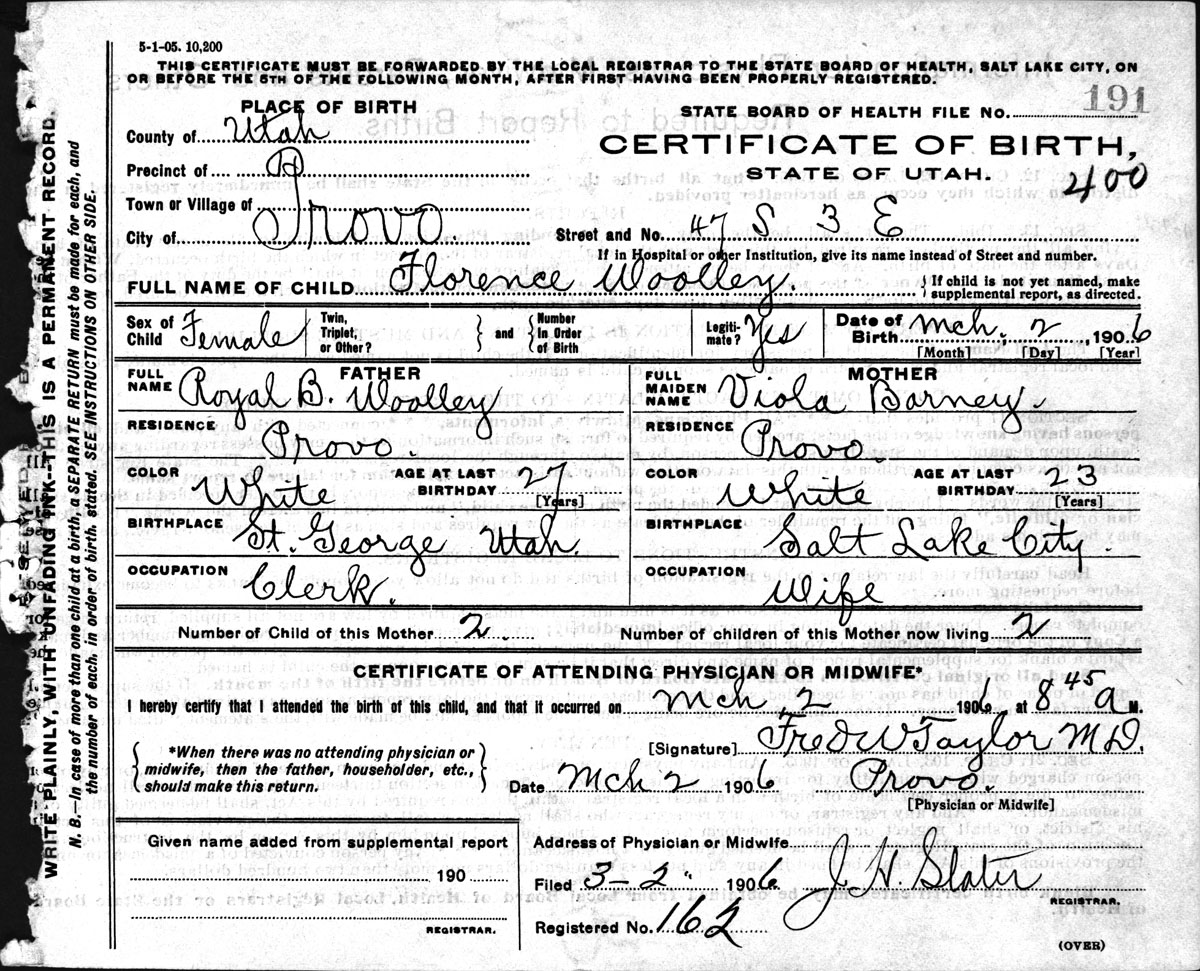 5-1-05. 10,200
THIS CERTIFICATE MUST BE FORWARDED BY THE LOCAL REGISTRAR TO THE STATE BOARD OF HEALTH, SALT LAKE CITY, ON
OR BEFORE THE 5TH OF THE FOLLOWING MONTH, AFTER FIRST HAVING BEEN PROPERLY REGISTERED.
PLACE OF BIRTH
County of Utah
Precinct of
Town or Village of
City of Provo.
STATE BOARD OF HEALTH FILE NO. 191
CERTIFICATE OF BIRTH,
STATE OF UTAH.
400
Street and No. 47 S 3 E
If in Hospital or other Institution, give its name instead of Street and number.
FULL NAME OF CHILD Florence Woolley. { If child is not yet named, make
supplemental report, as directed.
Sex of Child Female
Twin, Triplet, or Other? } and { Number In Order of Birth
Legiti-mate? Yes
Date of Birth Mch. 2, 1906
[Month] [Day] [Year]
FATHER
FULL NAME Royal B. Woolley
RESIDENCE Provo.
COLOR White AGE AT LAST BIRTHDAY 27 [Years]
BIRTHPLACE St. George Utah.
OCCUPATION Clerk.
MOTHER
FULL MAIDEN NAME Viola Barney.
RESIDENCE Provo
COLOR White AGE AT LAST BIRTHDAY 23 [Years]
BIRTHPLACE Salt Lake City.
OCCUPATION Wife
Number of Child of this Mother 2 Number of children of this Mother now living 2
CERTIFICATE OF ATTENDING PHYSICIAN OR MIDWIFE*
I hereby certify that I attended the birth of this child, and that it occurred on Mch 2 1906 at 8 45 a M.
{ *When there was no attending physician or
midwife, then the father, householder, etc.,
should make this return. }
[Signature] Fred W Taylor M.D.
Date Mch 2 1906 Provo.
[Physician or Midwife]
Given name added from supplemental report
190
REGISTRAR.
Address of Physician or Midwife
Filed 3-2" 1906 J. H. Slater
REGISTRAR.
Registered No. 162
(OVER)
WRITE PLAINLY, WITH UNFADING INK--THIS IS A PERMANENT RECORD.
N. B.—In case of more than one child at a birth, a SEPARATE RETURN must be made for each, and
the number of each, in order of birth, stated. SEE INSTRUCTIONS ON OTHER SIDE.